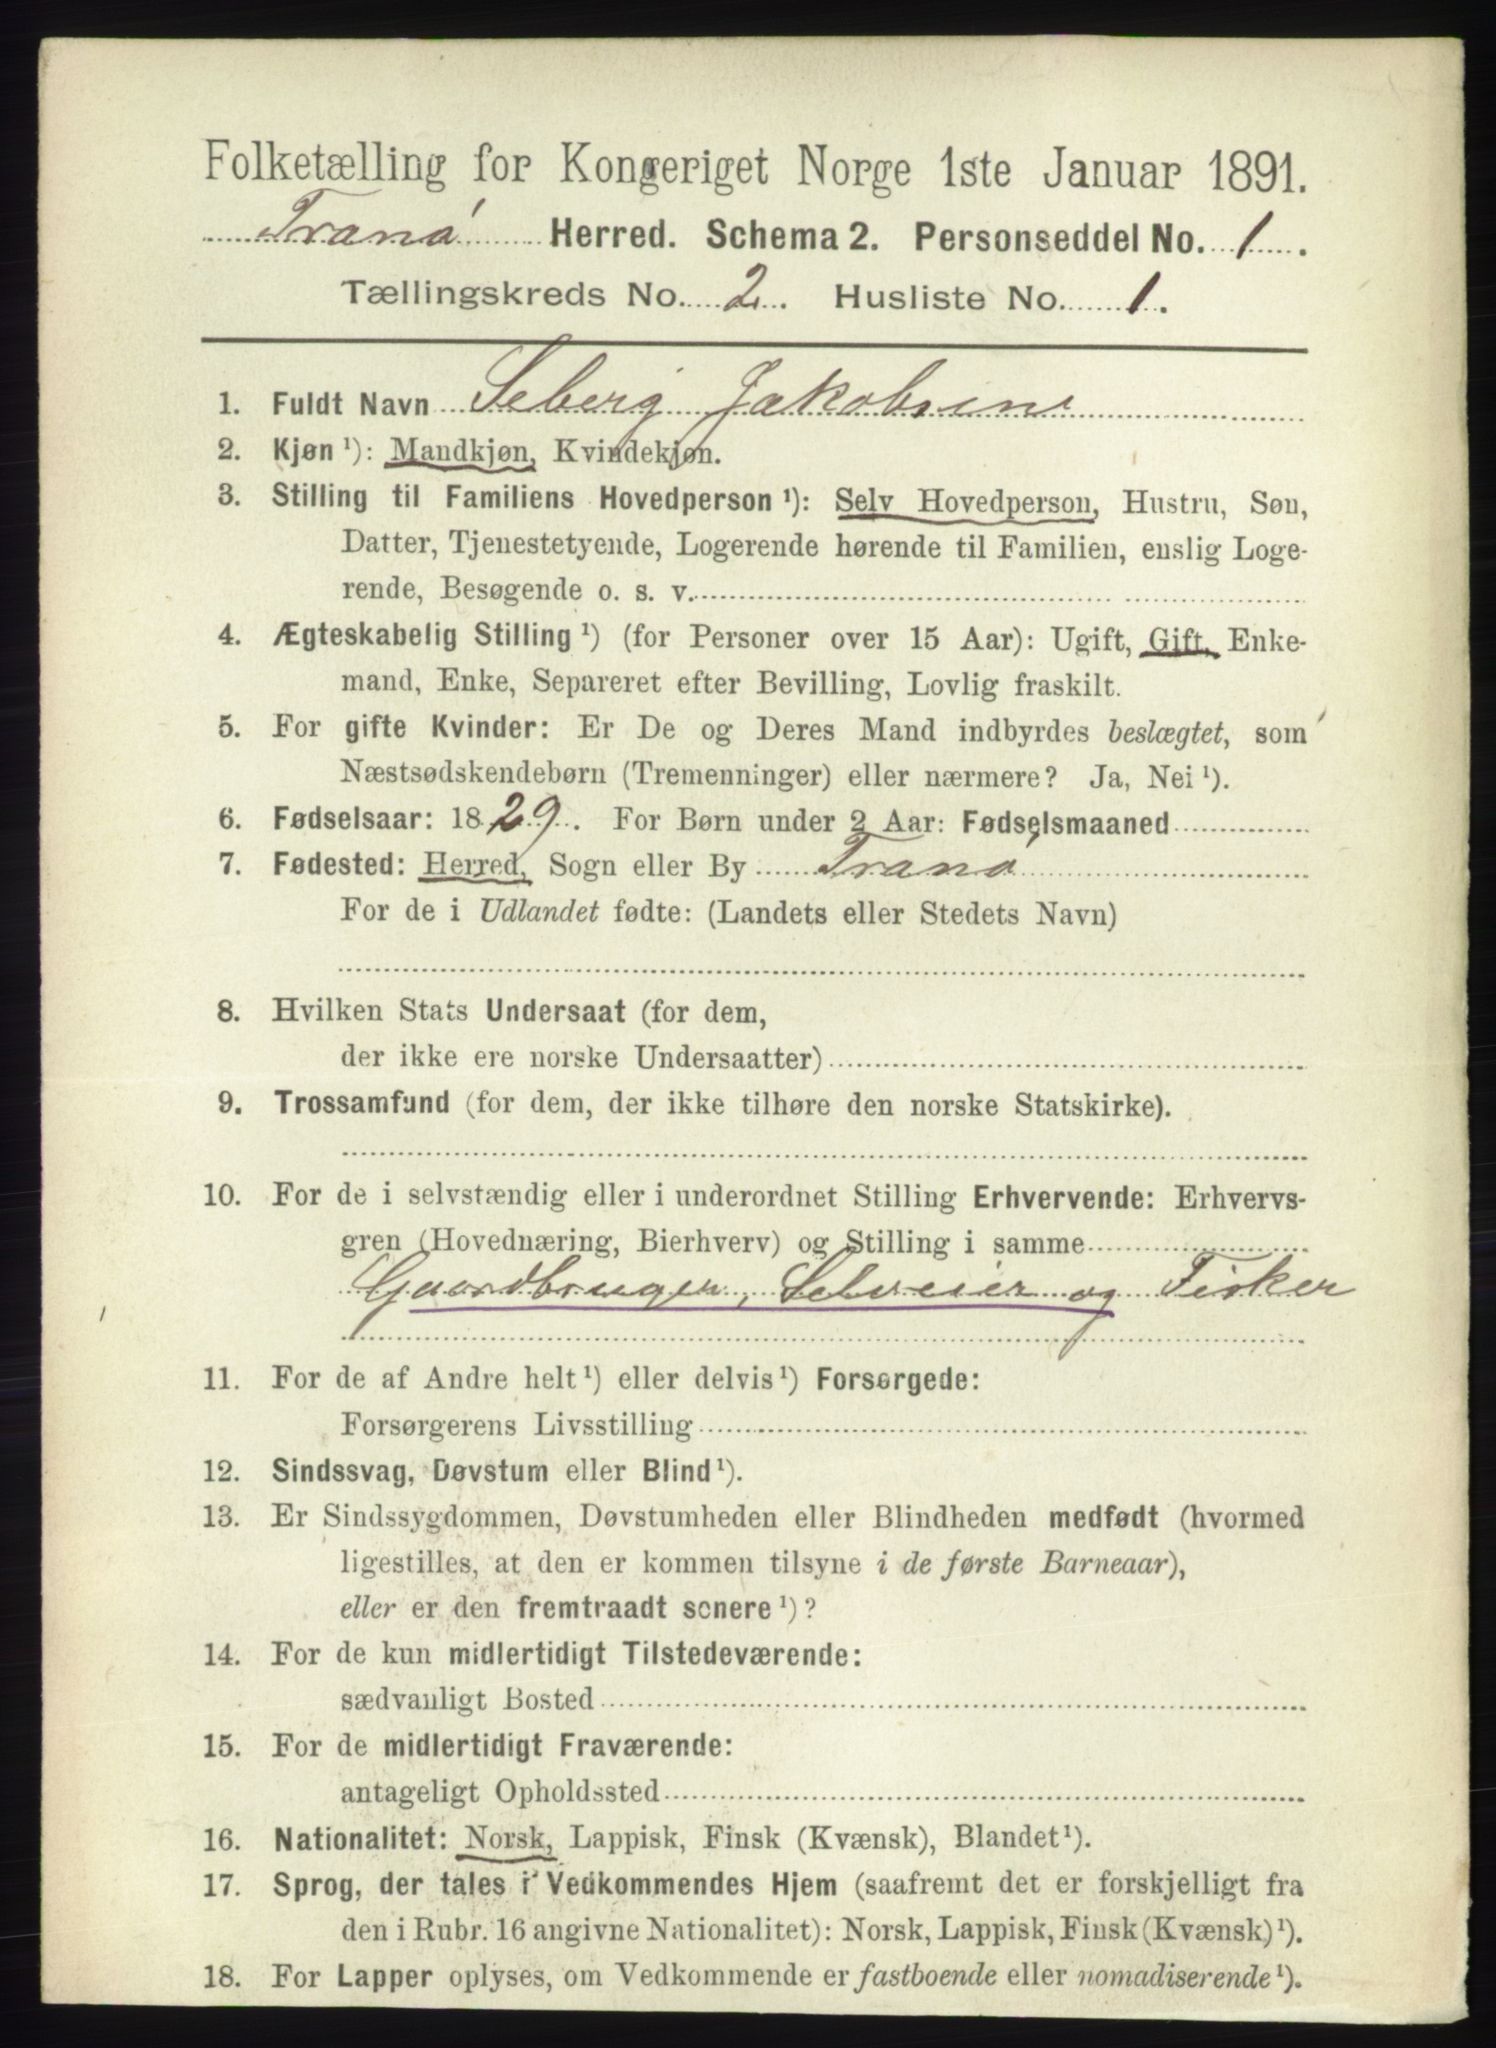 Folketælling for Kongeriget Norge 1ste Januar 1891.
Tranø Herred. Schema 2. Personseddel No. 1.
Tællingskreds No. 2. Husliste No. 1.
1. Fuldt Navn Seberg Jakobsen
2. Kjøn ¹): Mandkjøn, Kvindekjøn.
3. Stilling til Familiens Hovedperson ¹): Selv Hovedperson, Hustru, Søn,
Datter, Tjenestetyende, Logerende hørende til Familien, enslig Loge-
rende, Besøgende o. s. v.
4. Ægteskabelig Stilling ¹) (for Personer over 15 Aar): Ugift, Gift, Enke-
mand, Enke, Separeret efter Bevilling, Lovlig fraskilt.
5. For gifte Kvinder: Er De og Deres Mand indbyrdes beslægtet, som
Næstsødskendebørn (Tremenninger) eller nærmere? Ja, Nei ¹).
6. Fødselsaar: 1829. For Børn under 2 Aar: Fødselsmaaned
7. Fødested: Herred, Sogn eller By Tranø
For de i Udlandet fødte: (Landets eller Stedets Navn)
8. Hvilken Stats Undersaat (for dem,
der ikke ere norske Undersaatter)
9. Trossamfund (for dem, der ikke tilhøre den norske Statskirke).
10. For de i selvstændig eller i underordnet Stilling Erhvervende: Erhvervs-
gren (Hovednæring, Bierhverv) og Stilling i samme
Gaardbruger, Selveier og Fisker
11. For de af Andre helt ¹) eller delvis ¹) Forsørgede:
Forsørgerens Livsstilling
12. Sindssvag, Døvstum eller Blind ¹).
13. Er Sindssygdommen, Døvstumheden eller Blindheden medfødt (hvormed
ligestilles, at den er kommen tilsyne i de første Barneaar),
eller er den fremtraadt senere ¹)?
14. For de kun midlertidigt Tilstedeværende:
sædvanligt Bosted
15. For de midlertidigt Fraværende:
antageligt Opholdssted
16. Nationalitet: Norsk, Lappisk, Finsk (Kvænsk), Blandet ¹).
17. Sprog, der tales i Vedkommendes Hjem (saafremt det er forskjelligt fra
den i Rubr. 16 angivne Nationalitet): Norsk, Lappisk, Finsk (Kvænsk) ¹).
18. For Lapper oplyses, om Vedkommende er fastboende eller nomadiserende ¹).